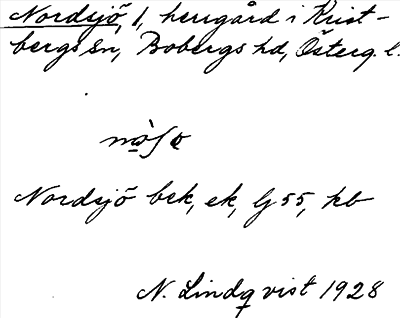 Nordsjö, 1, herrgård i Krist-
bergs sn, Bobergs hd, Österg. l.
Nordsjö bek, ek, G 55, kb
N. Lindqvist 1928